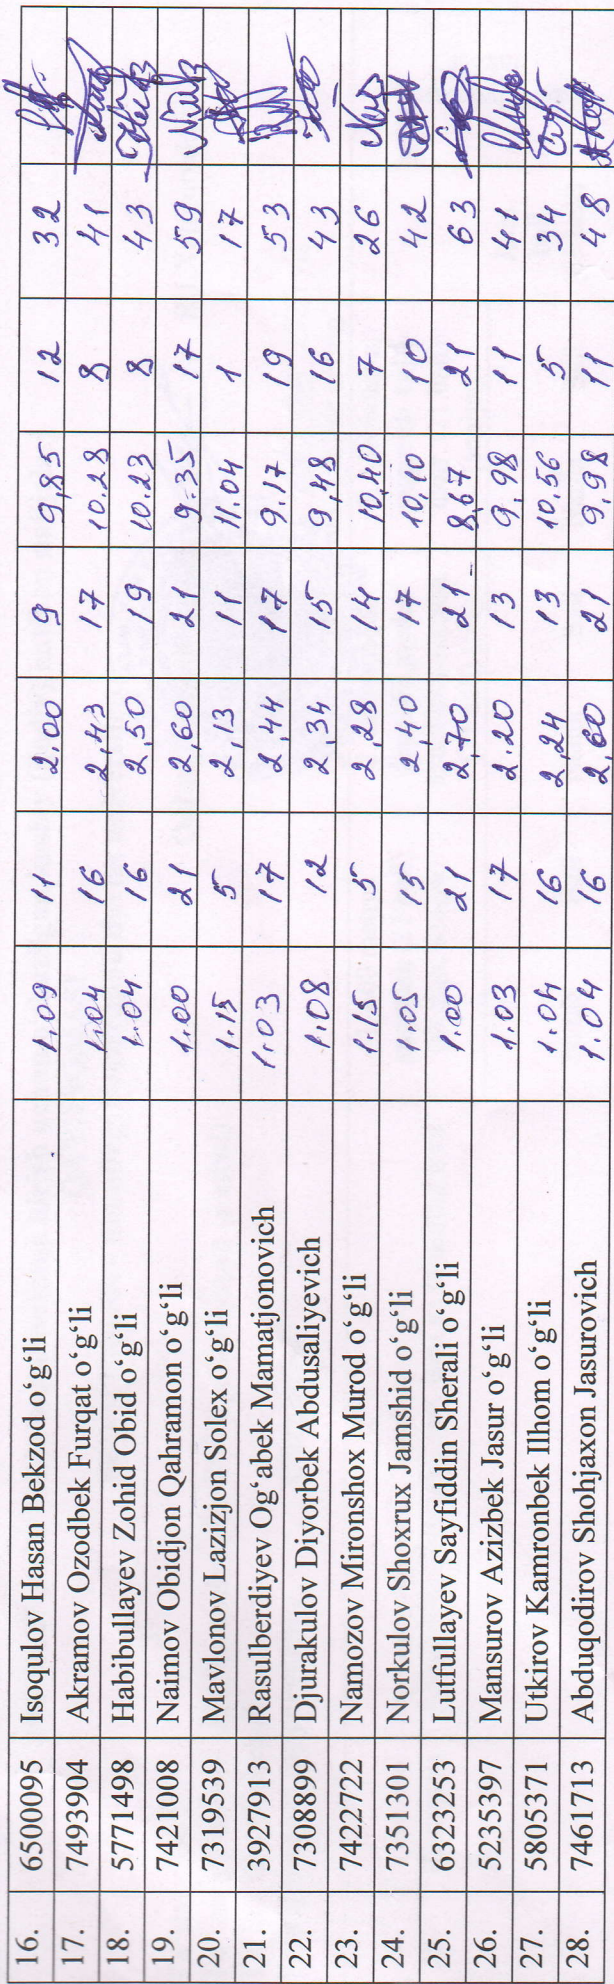 16. 6500095 Isoqulov Hasan Bekzod o‘g‘li 1.09 11 2.00 9 9,85 12 32
17. 7493904 Akramov Ozodbek Furqat o‘g‘li 1.04 16 2,43 17 10.28 8 41
18. 5771498 Habibullayev Zohid Obid o‘g‘li 1.04 16 2,50 19 10.23 8 43
19. 7421008 Naimov Obidjon Qahramon o‘g‘li 1.00 21 2,60 21 9.35 17 59
20. 7319539 Mavlonov Lazizjon Solex o‘g‘li 1.15 5 2,13 11 11.04 1 17
21. 3927913 Rasulberdiyev Og‘abek Mamatjonovich 1.03 17 2,44 17 9.17 19 53
22. 7308899 Djurakulov Diyorbek Abdusaliyevich 1.08 12 2,34 15 9,48 16 43
23. 7422722 Namozov Mironshox Murod o‘g‘li 1.15 5 2,28 14 10,40 7 26
24. 7351301 Norkulov Shoxrux Jamshid o‘g‘li 1.05 15 2,40 17 10,10 10 42
25. 6323253 Lutfullayev Sayfiddin Sherali o‘g‘li 1.00 21 2,70 21 8,67 21 63
26. 5235397 Mansurov Azizbek Jasur o‘g‘li 1.03 17 2.20 13 9,98 11 41
27. 5805371 Utkirov Kamronbek Ilhom o‘g‘li 1.04 16 2,24 13 10,56 5 34
28. 7461713 Abduqodirov Shohjaxon Jasurovich 1.04 16 2,60 21 9,98 11 48